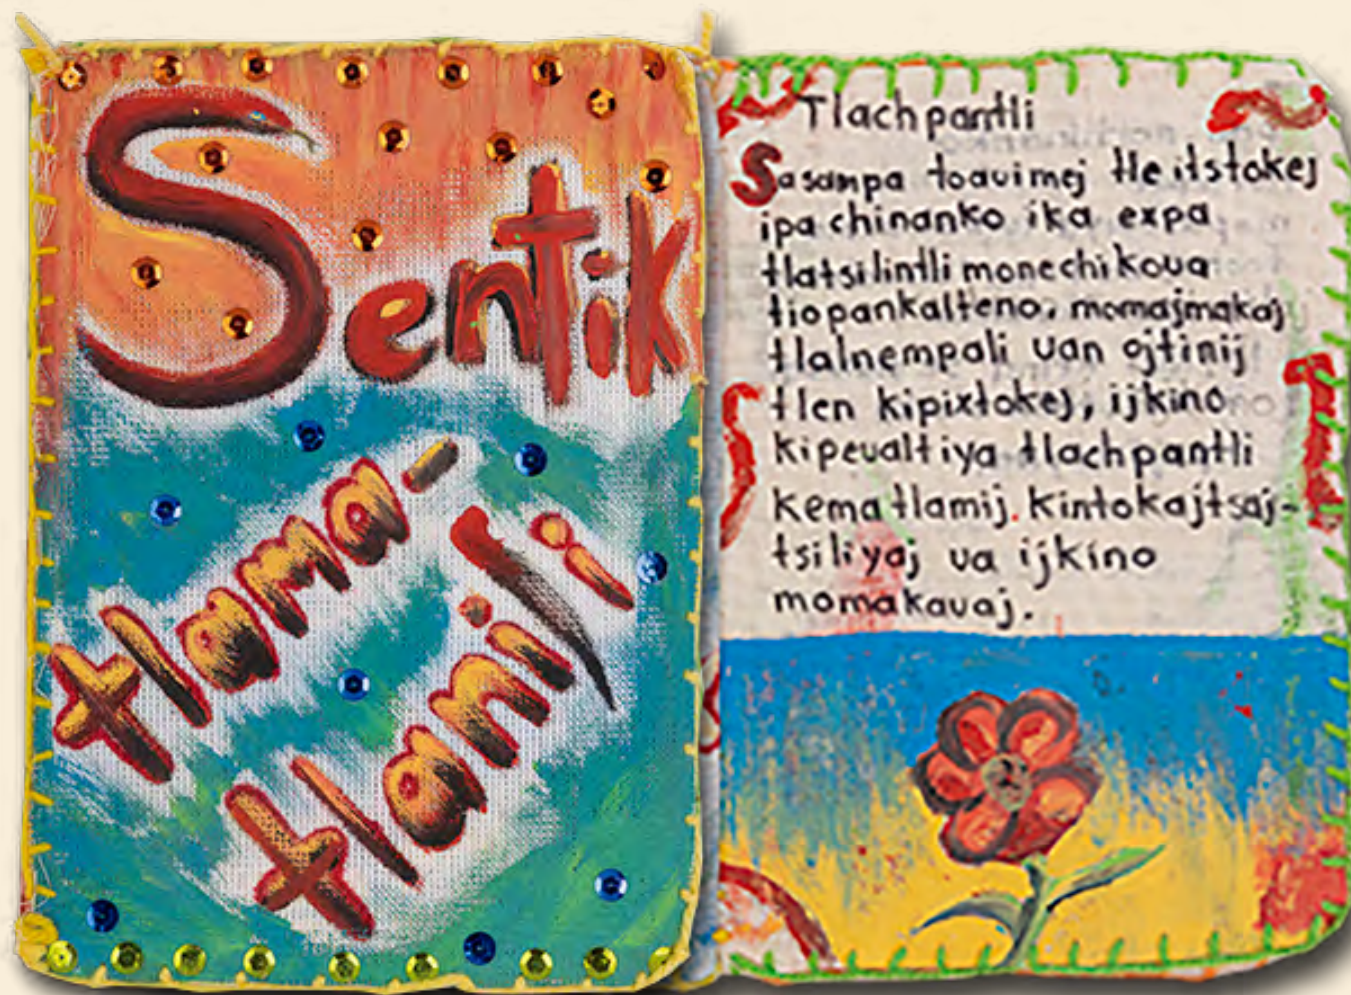 Sentik
tlama-
tlanijli
Tlachpantli
Sasampa toauimej tle itstokej
ipa chinanko ika expa
tlatsilintli monechikoua
tiopankalteno, momajmakaj
tlalnempali uan ojtinij
tlen kipixtokej, ijkino
kipeualtiya tlachpantli
kema tlamij. kintokajtsaj-
tsiliyaj ua ijkino
momakauaj.